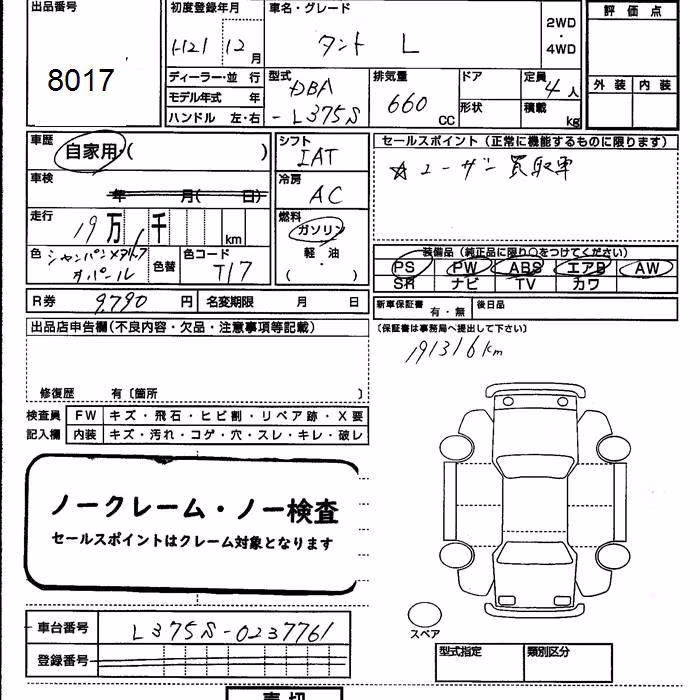 出品番号 初度登録年月 車名・グレード 評価点
8017 H21 12月 タント L 2WD・4WD
ディーラー・並 行 型式 排気量 ドア 定員 外装 内装
モデル年式 年 DBA 660 CC 4人
ハンドル 左・右 -L375S 形状 積載 kg
車歴 自家用・( ) シフト IAT セールスポイント(正常に機能するものに限ります)
☆ユーザー買取車
車検 年 月( 日) 冷房 AC
走行 19万 1千 km 燃料 ガソリン
軽・油
( )
色 シャンパンメタリック 色替 色コード
オパール T17
装備品(純正品に限り○をつけてください)
PS PW ABS エアB AW
SR ナビ TV カワ
R券 9,790 円 名変期限 月 日 新車保証書 有・無 後日品
出品店申告欄(不良内容・欠品・注意事項等記載) (保証書は事務局へ提出して下さい)
191316km
修復歴 有〔箇所 〕
検査員 FW キズ・飛石・ヒビ割・リペア跡・X要
記入欄 内装 キズ・汚れ・コゲ・穴・スレ・キレ・破レ
ノークレーム・ノー検査
セールスポイントはクレーム対象となります
車台番号 L375S-0237761
スペア
登録番号
型式指定 類別区分